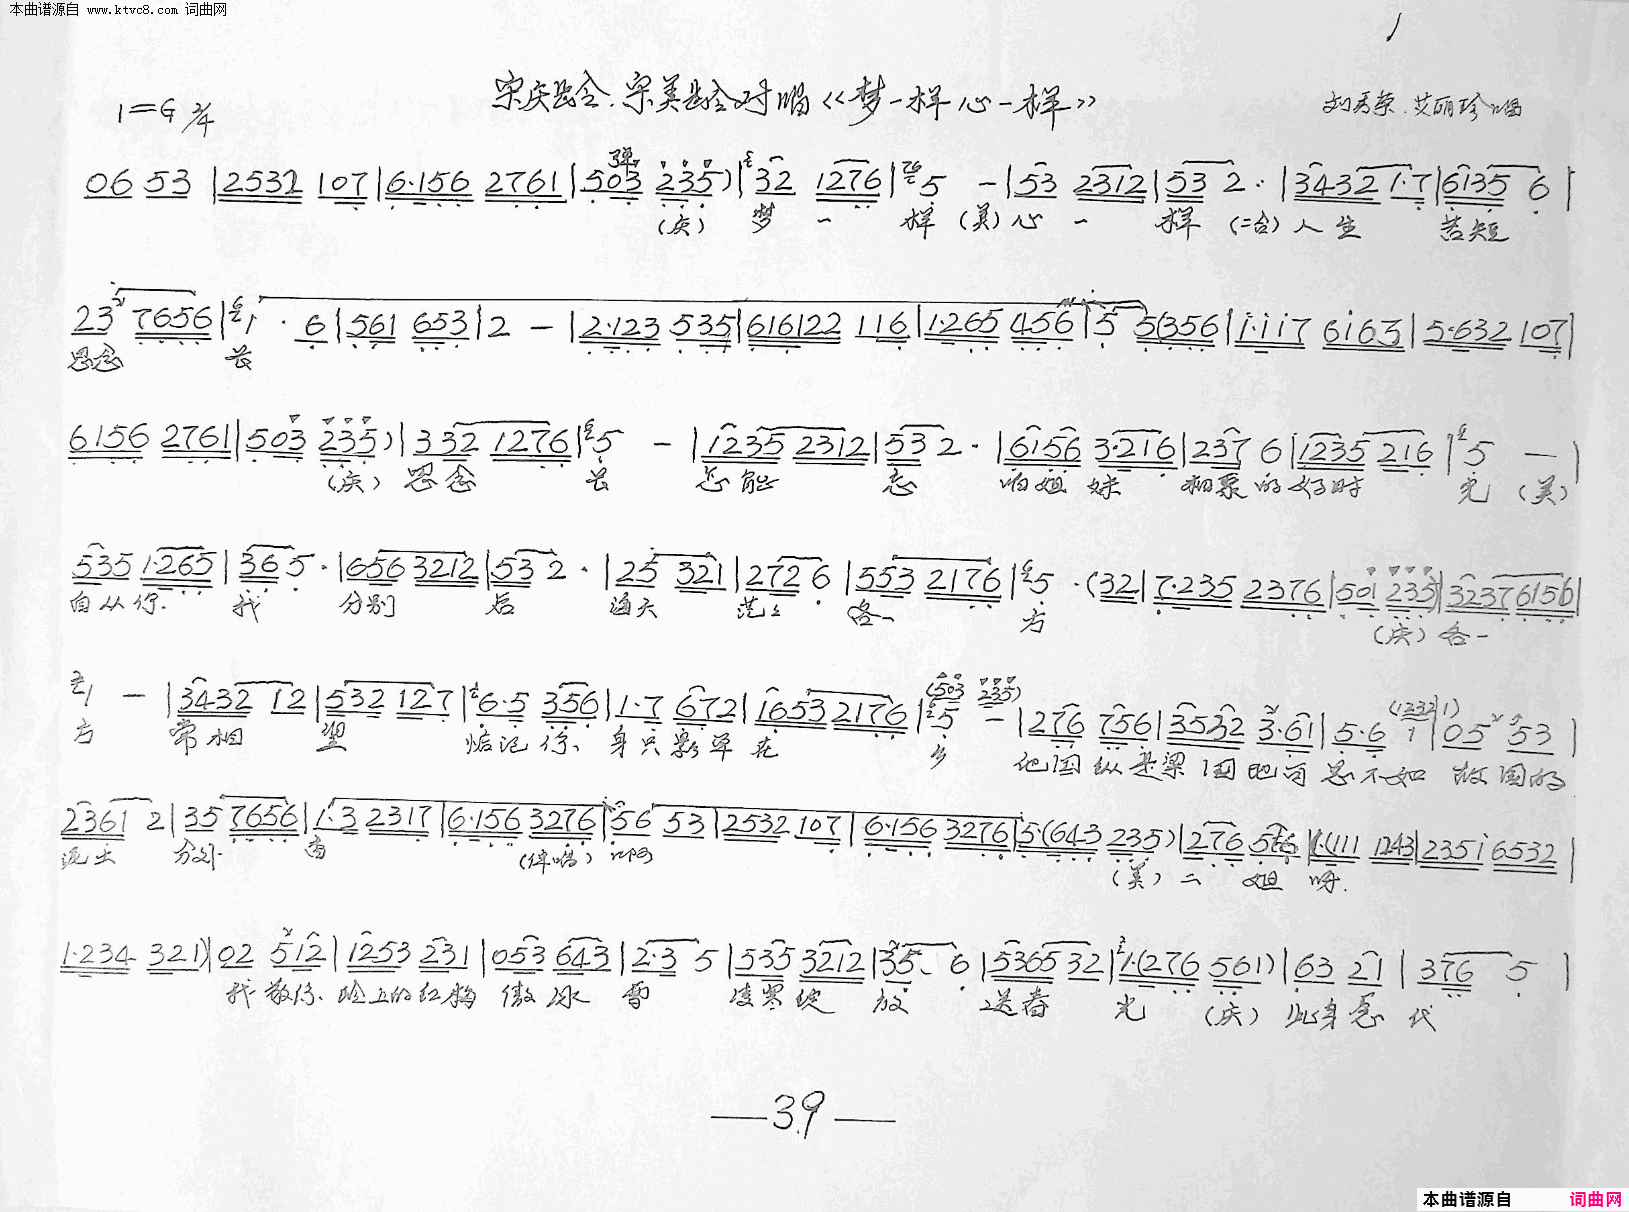 本曲谱源自 www.ktvc8.com 词曲网
1
1=G 2/4 宋庆龄.宋美龄对唱《梦一样心一样》 刘秀荣.艾丽珍唱
06 53 |2532 107|6·156 2761|503 235)|32 1276|5 - |53 2312|53 2· |3432 1·7|6135 6|
(庆) 梦一样(美)心一样(二合)人生苦短
23 7656|1· 6|561 653|2 - |2·123 535|616122 116|1·265 456|5 5(356|1·117 6163|5·632 107|
思念 长
6156 2761|503 235)|332 1276|5 - |1235 2312|53 2· |6156 3·216|237 6|1235 216|5 - |
(庆)思念 长 怎能 忘 咱姐妹 相聚的好时 光 (美)
535 1·265|36 5· |656 3212|53 2· |25 321|272 6|553 2176|5 ·(32|7·235 2376|501 235)|3237 6156|
自从你.我 分别 后 海天 茫茫 各一 方 (庆)各一
1 - |3432 12|532 127|6·5 356|1·7 672|1653 2176|5 - |276 756|3532 3·61|5·6 1|05 53|
(503 235) (12321)
方 常相 望 惦记你、身只影单在 乡 他国纵是梁园地 总不如 故国的
2361 2|35 7656|1·3 2317|6·156 3276|56 53|2532 107|6·156 3276|5·(643 235)|276 556|1·(111 1243|2351 6532|
泥土 分外 香 (伴唱)啊 (美)二 姐 呀.
1·234 321)|02 512|1253 231|053 643|2·3 5|535 3212|35 6|5365 32|1·(276 561)|63 21|376 5|
我敬你.岭上的红梅 傲冰 雪 凌寒绽 放 送春 光 (庆)此身 代
—39—
本曲谱源自 词曲网